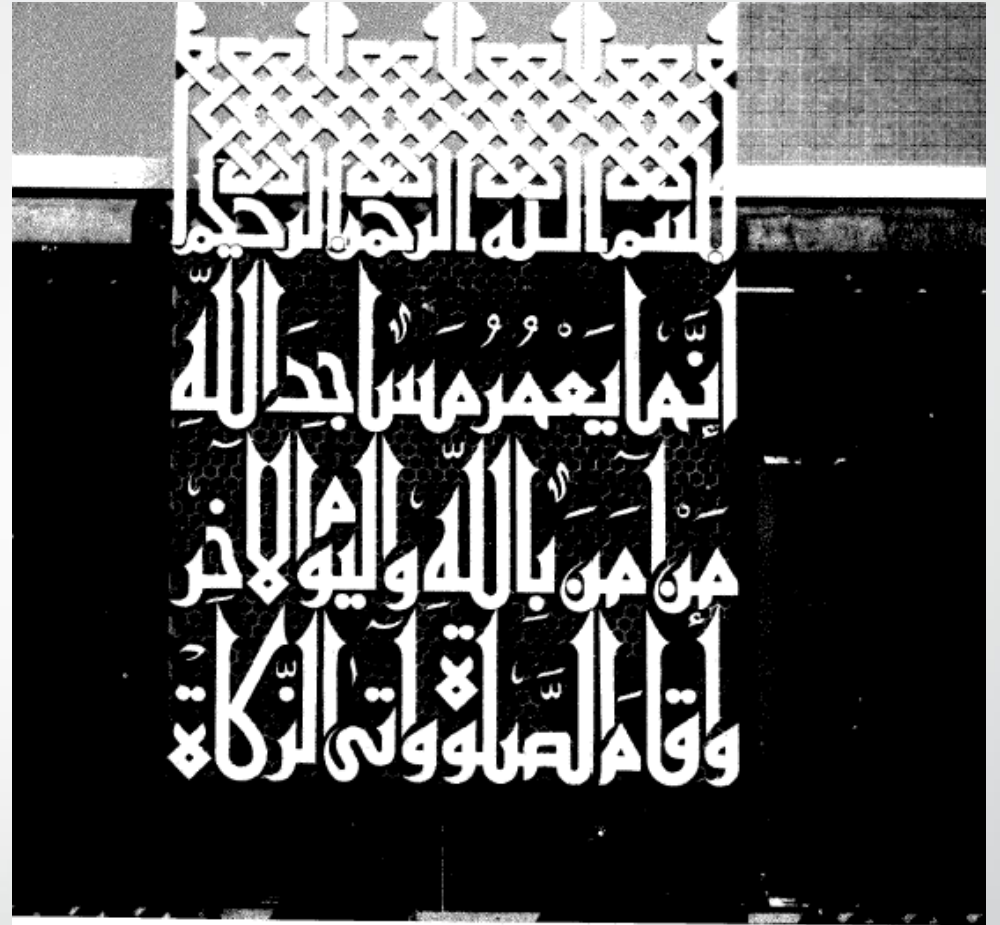 بسم الله الرحمن الرحيم
إِنَّمَا يَعْمُرُ مَسَاجِدَ اللَّهِ
مَنْ آمَنَ بِاللَّهِ وَالْيَوْمِ الْآخِرِ
وَأَقَامَ الصَّلَوةَ وَآتَى الزَّكَاةَ